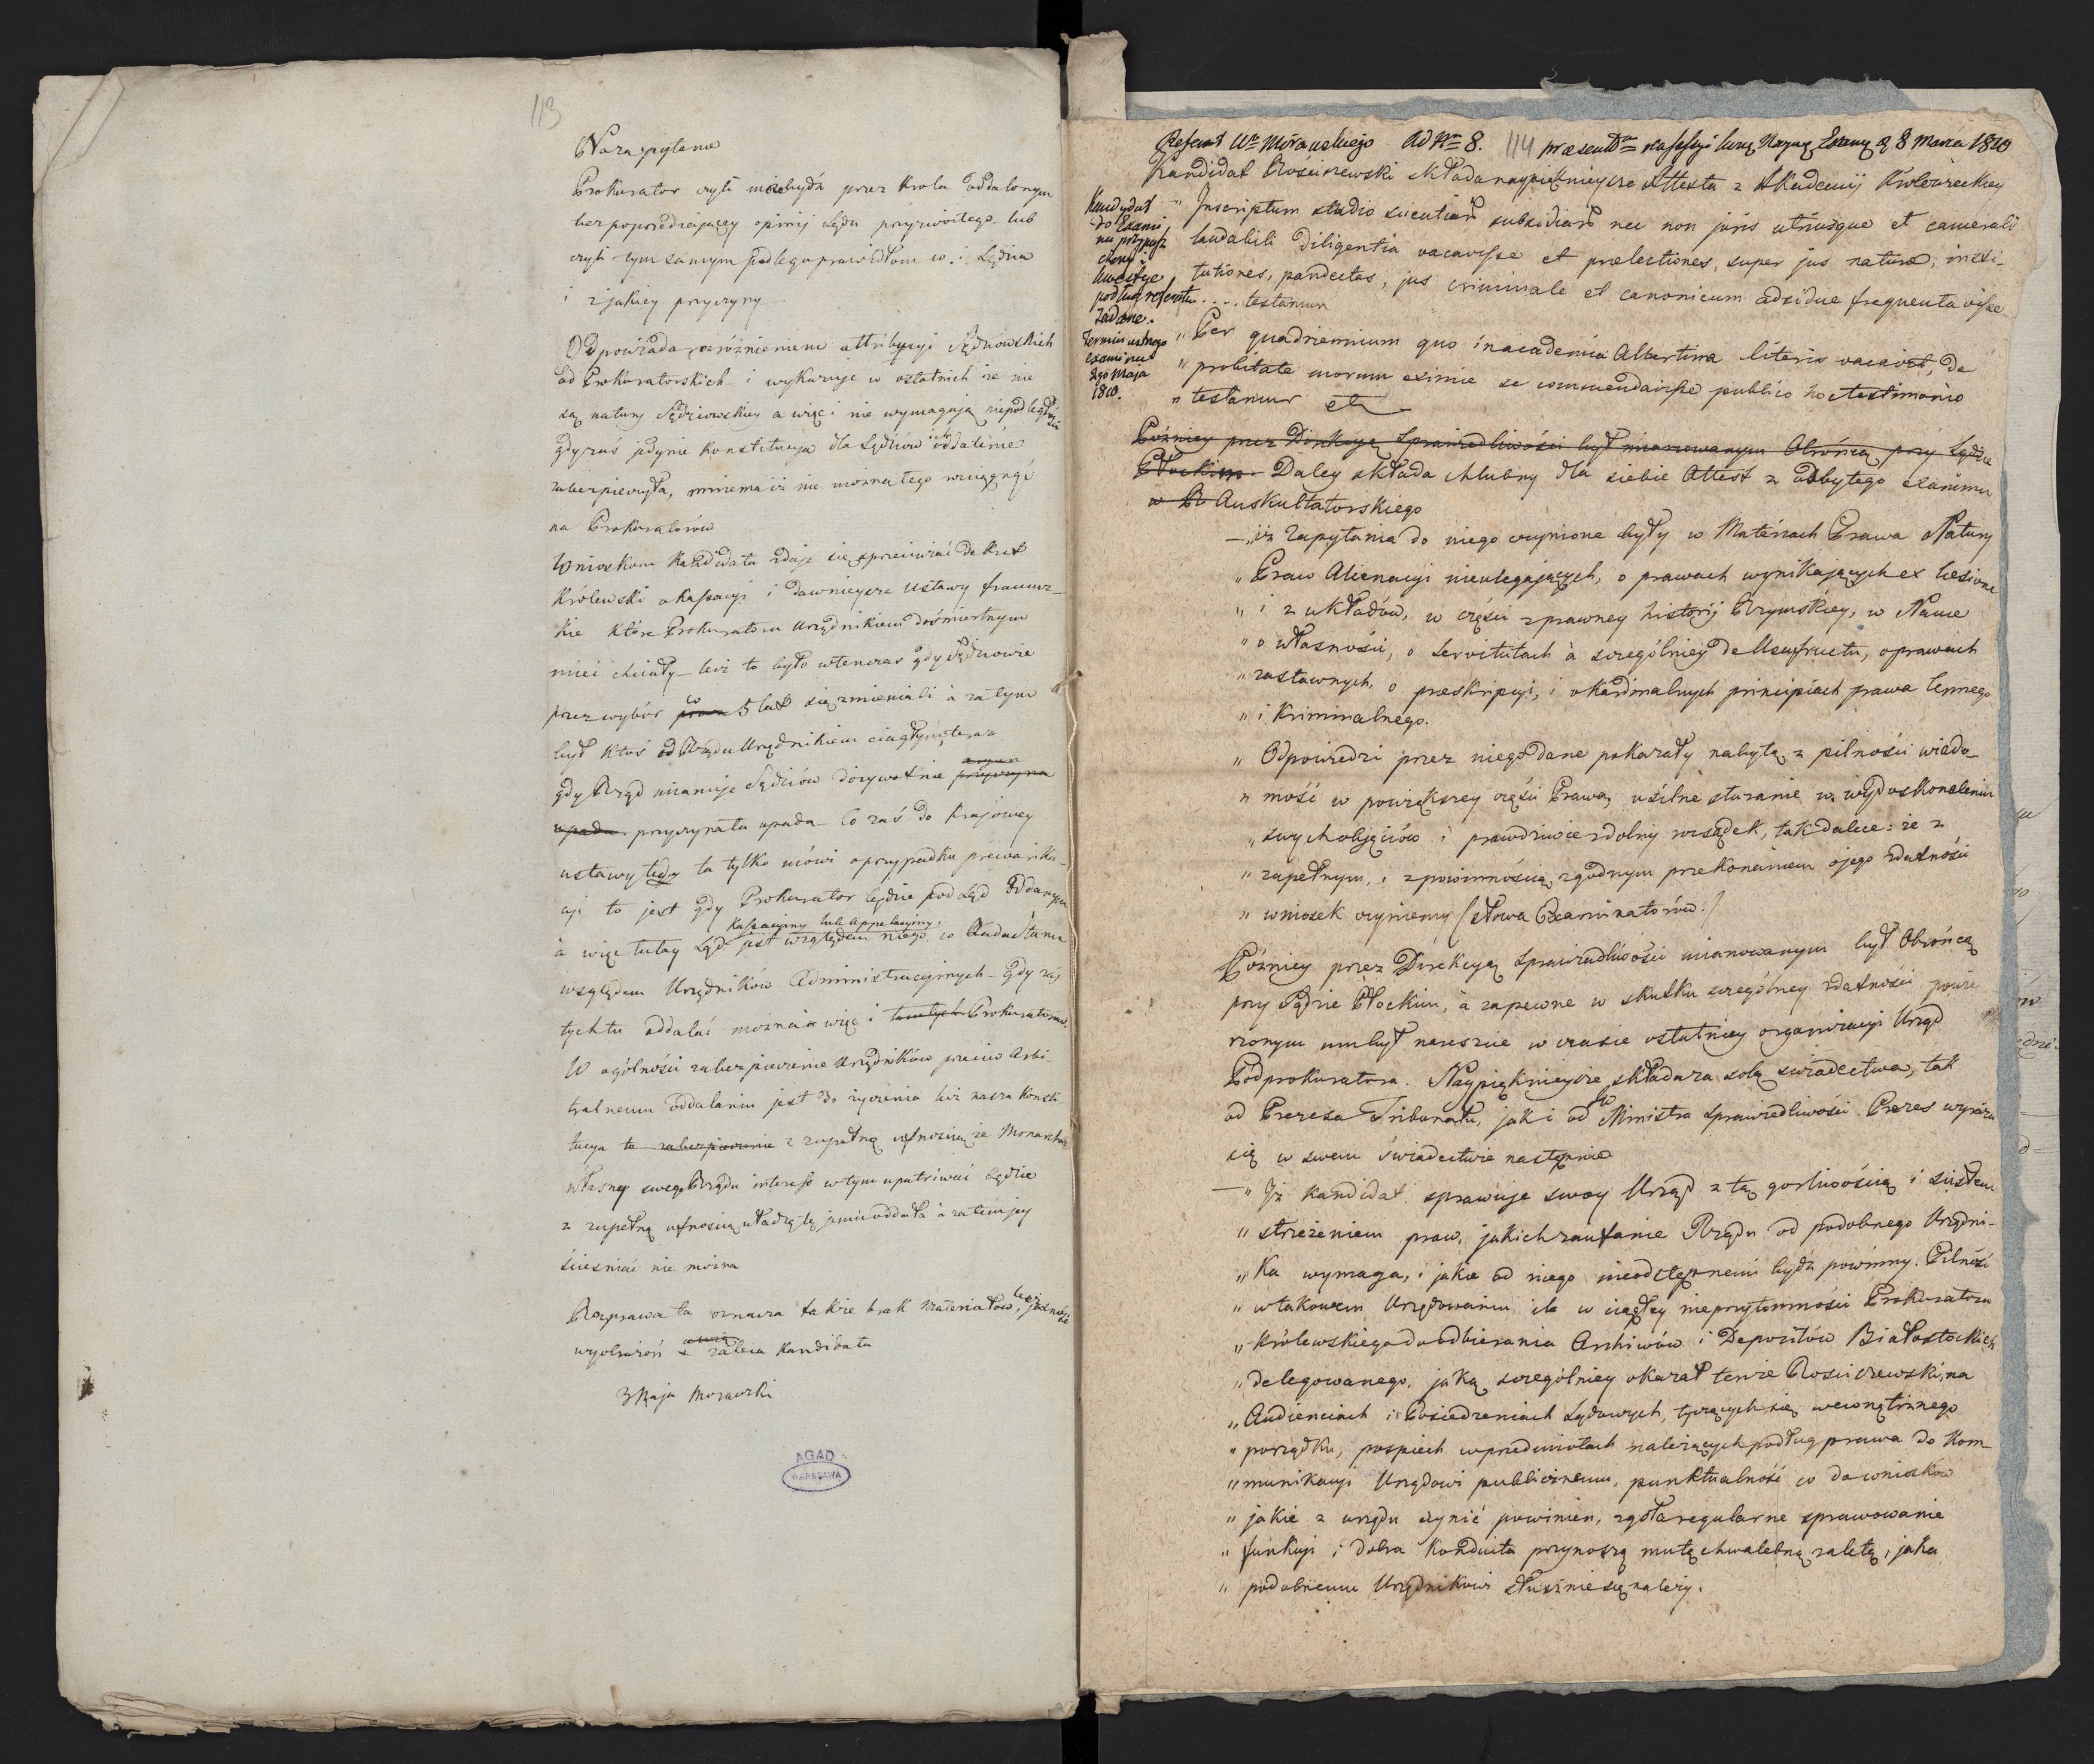 113
Na zapytanie
Prokurator czyli może bydź przez Krola oddalonym
bez poprzedzaiącey opinij Sądu przyzwoitego lub
czyli tym samym podlega prawidłom co i Sędzia
i z jakiey przyczyny
Odpowiada rozróżnieniem attribucyi Sędziowskich
od Prokuratorskich i wykazuje w ostatnich że nie
są natury Sędziowskiey a więc i nie wymagają niepodległości
gdy zaś jedynie Konstitucya dla Sędziów oddalenie
zabezpieczyła, mniema iż nie można tego rozciągnąć
na Prokuratorów
Wnioskom Kandidata zdaje się sprzeciwiać dekret
Królewski o Kassacyi i dawnieysze Ustawy francuz-
kie które Prokuratora Urzędnikiem dośmiertnym
mieć chciały lecz to było wtenczas gdy Sędziowie
przez wybór co 5 lat się zmieniali à zatym
był ktoś od Rządu Urzędnikiem ciągłym, teraz
gdy Rząd mianuje Sędziów dożywotnie
przyczyna ta upada. Co zaś do Krajowey
ustawy tedy ta tylko mówi o przypadku prewarika-
cyi to jest gdy Prokurator będzie pod Sąd oddanym
Kassacyiny lub Appelacyiny
à więc tutay Sąd jest względem niego co Rada Stanu
względem Urzędników Administracyinych. Gdy zaś
tych tu oddalać można à więc i Prokuratorów.
W ogólności zabezpieczenie Urzędników przeciw Arbi-
tralnemu oddalaniu jest do życzenia lecz nasza Konsti-
tucya z zupełną ufnością że Monarcha
własny swego Rządu interess w tym upatriwać będzie
z zupełną ufnością władzę tę jemu oddała à zatem jey
ścieśniać nie można
Rozprawa ta oznacza także brak Materiałów, lecz jasność
wyobrażeń zaleca Kandidata
3 Maja Morawski
AGAD
WARSZAWA
Referat Wo Morawskiego Ad Nm 8. 114 praesent na sessyi 8 Marca 1810
Kandidat Rościszewski składa naypięknieysze Attesta z Akademij Królewieckiey
Kandydat
do Exami
nu przypusz
czony
Kwestye
podług referatu
zadane.
Termin ustnego
examinu
2go Maja
1810.
" Inscriptum studio scientiarum subsidiarum nec non juris utriusque et cameralis
laudabili diligentia vacavisse et praelectiones, super jus naturæ, insti-
tutiones, pandectas, jus criminale et canonicum adsidue frequentavisse
.... testamur
" Per quadriennium quo in academia Albertina literis vacavit, de
" probitate morum eximie se commendavisse publico hoc testimonio
" testamur etc
Pózniey przez Direkcyą Sprawiedliwości był mianowanym Obrońcą przy Sądzie
Płockim Daley składa chlubny dla siebie Attest z odbytego examinu
Auskultatorskiego
— "iż Zapytania do niego czynione były w Materiach Prawa Natury
" Praw Alienacyi nieulegających, o prawach wynikających ex læsione
" i z układów, w części zprawney historij Rzymskiey, w Nauce
" o własności, o Servitutach à szczególniey de Usufructu, o prawach
" zastawnych, o preskripcyi, i o Kardinalnych principiach prawa lennego
" i Kriminalnego.
" Odpowiedzi przez niego dane pokazały nabytą z pilności wiado-
" mość w powiększey części Prawa, usilne staranie w wydoskonaleniu
" swych objęciów i prawdziwie zdolny rozsądek, tak dalece: że z
" zupełnym, i z powinnością zgodnym przekonaniem o jego zdatności
" wniosek czyniemy / słowa Examinatorów. /
Pózniey przez Direkcyą Sprawiedliwości mianowanym był Obrońcą
przy Sądzie Płockim, à zapewne w skutku szczególney zdatności powie
rzonym mu był nareszcie w czasie ostatniey organizacyi Urząd
Podprokuratora. Naypięknieysze składa za sobą świadectwa, tak
od Prezesa Tribunału, jak i od JW Ministra Sprawiedliwości. Prezes wyraża
się w swem świadectwie następnie
— " Iż kandidat sprawuje swoy Urząd z tą gorliwością i ścisłem
" strzeżeniem praw, jakich zaufanie Rządu od podobnego Urzędni-
" Ka wymaga, i jakie od niego nieodstępnemi bydź powinny. Pilność
" w takowem Urzędowaniu ile w ciągłey nieprzytomności Prokuratora
" Królewskiego do odbierania Archiwów i Depozitów Białostockich
" delegowanego, jaką szczególniey okazał tenże Rościszewski, na
" Audienciach i Posiedzeniach Sądowych, tyczących się wewnątrznego
" porządku, pospiech w przedmiotach należących podług prawa do Kom-
" munikacyi Urzędowi publicznemu, punktualność co do wniosków
" jakie z urzędu czynić powinien, zgoła regularne sprawowanie
" funkcyi i dobra Konduita przynoszą mu tę chwalebną zaletę, jaka
" podobnemu Urzędnikowi słusznie się należy.